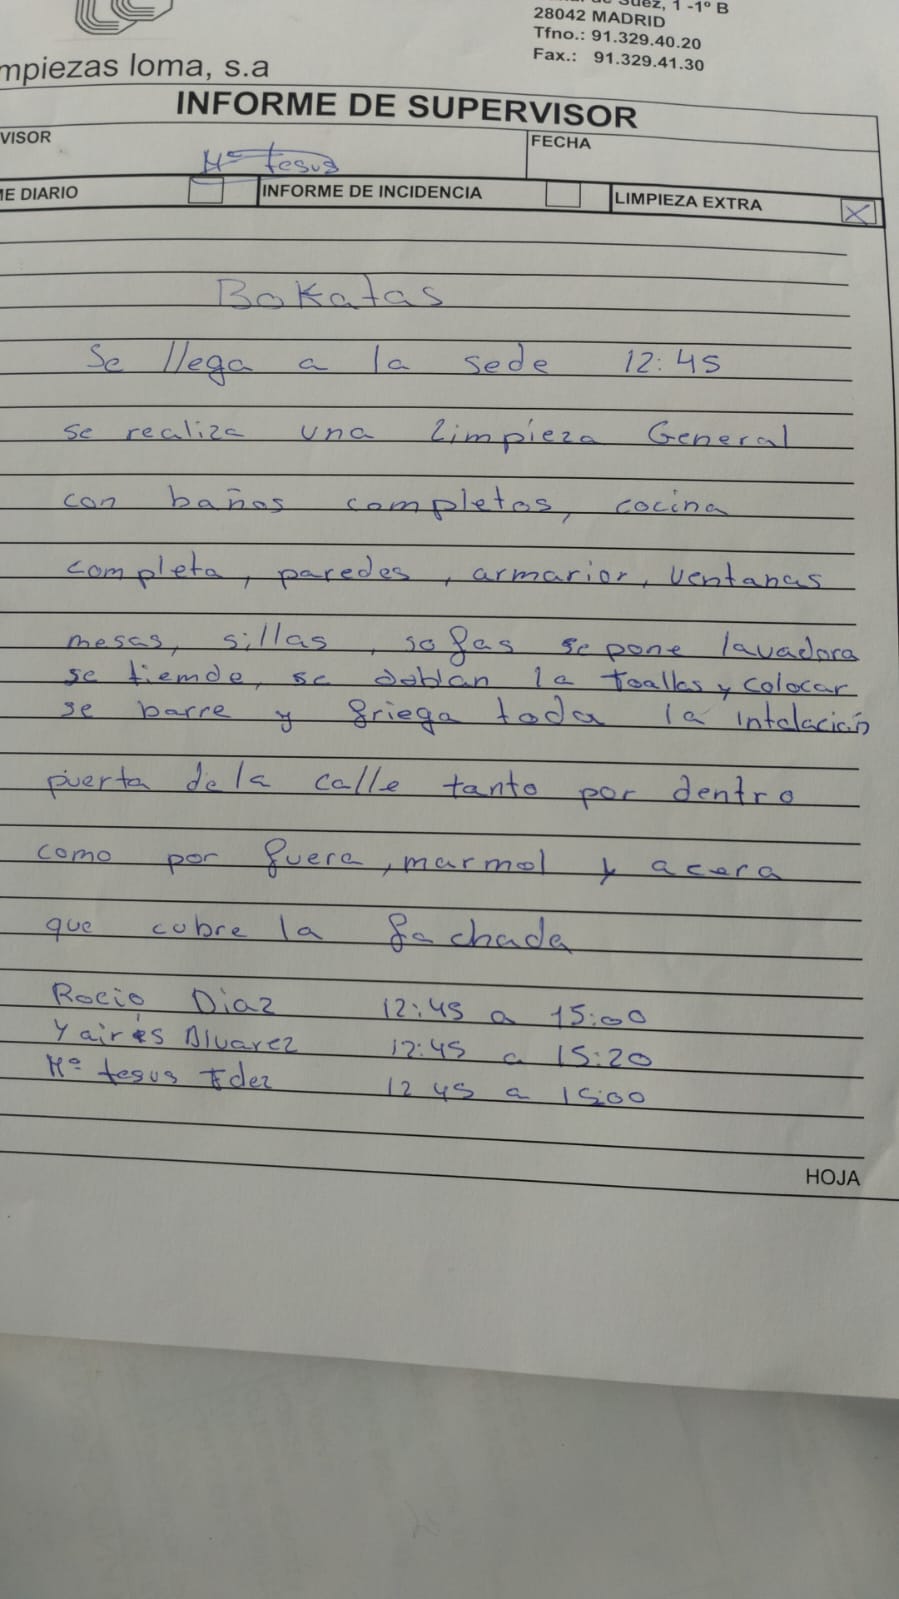 Suez, 1 -1º B
28042 MADRID
Tfno.: 91.329.40.20
Fax.: 91.329.41.30
mpiezas loma, s.a
INFORME DE SUPERVISOR
VISOR
Mª Jesus
FECHA
ME DIARIO
INFORME DE INCIDENCIA
LIMPIEZA EXTRA X
Bokatas
Se llega a la sede 12:45
se realiza una limpieza General
con baños completos, cocina
completa, paredes, armarior, ventanas
mesas, sillas, sofas se pone lavadora
se tiende, se doblan la toallas y colocar
se barre y friega toda la intalación
puerta de la calle tanto por dentro
como por fuera, marmol y acera
que cubre la fachada
Rocio Diaz 12:45 a 15:00
Yaires Alvarez 12:45 a 15:20
Mª Jesus Fdez 12 45 a 15:00
HOJA